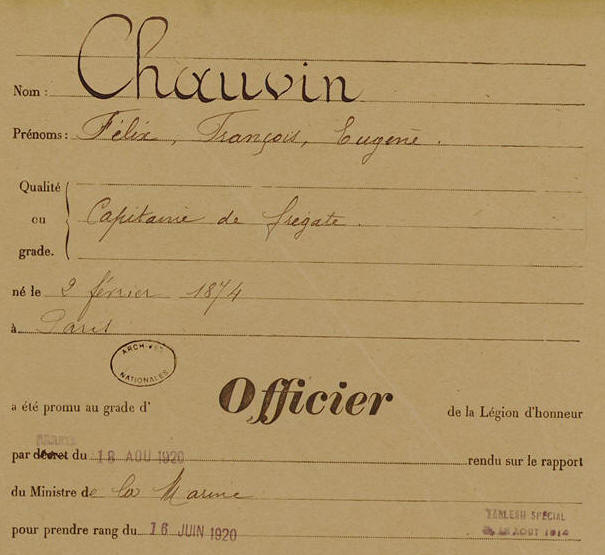 Nom : Chauvin
Prénoms : Félix, François, Eugène.
Qualité
ou
grade.
Capitaine de fregate.
né le 2 février 1874
à Paris
ARCHIVES
NATIONALES
a été promu au grade d' Officier de la Légion d'honneur
par décret du 18 AOU 1920 rendu sur le rapport
du Ministre de la Marine
pour prendre rang du 16 JUIN 1920
TABLEAU SPÉCIAL
AOUT 1914